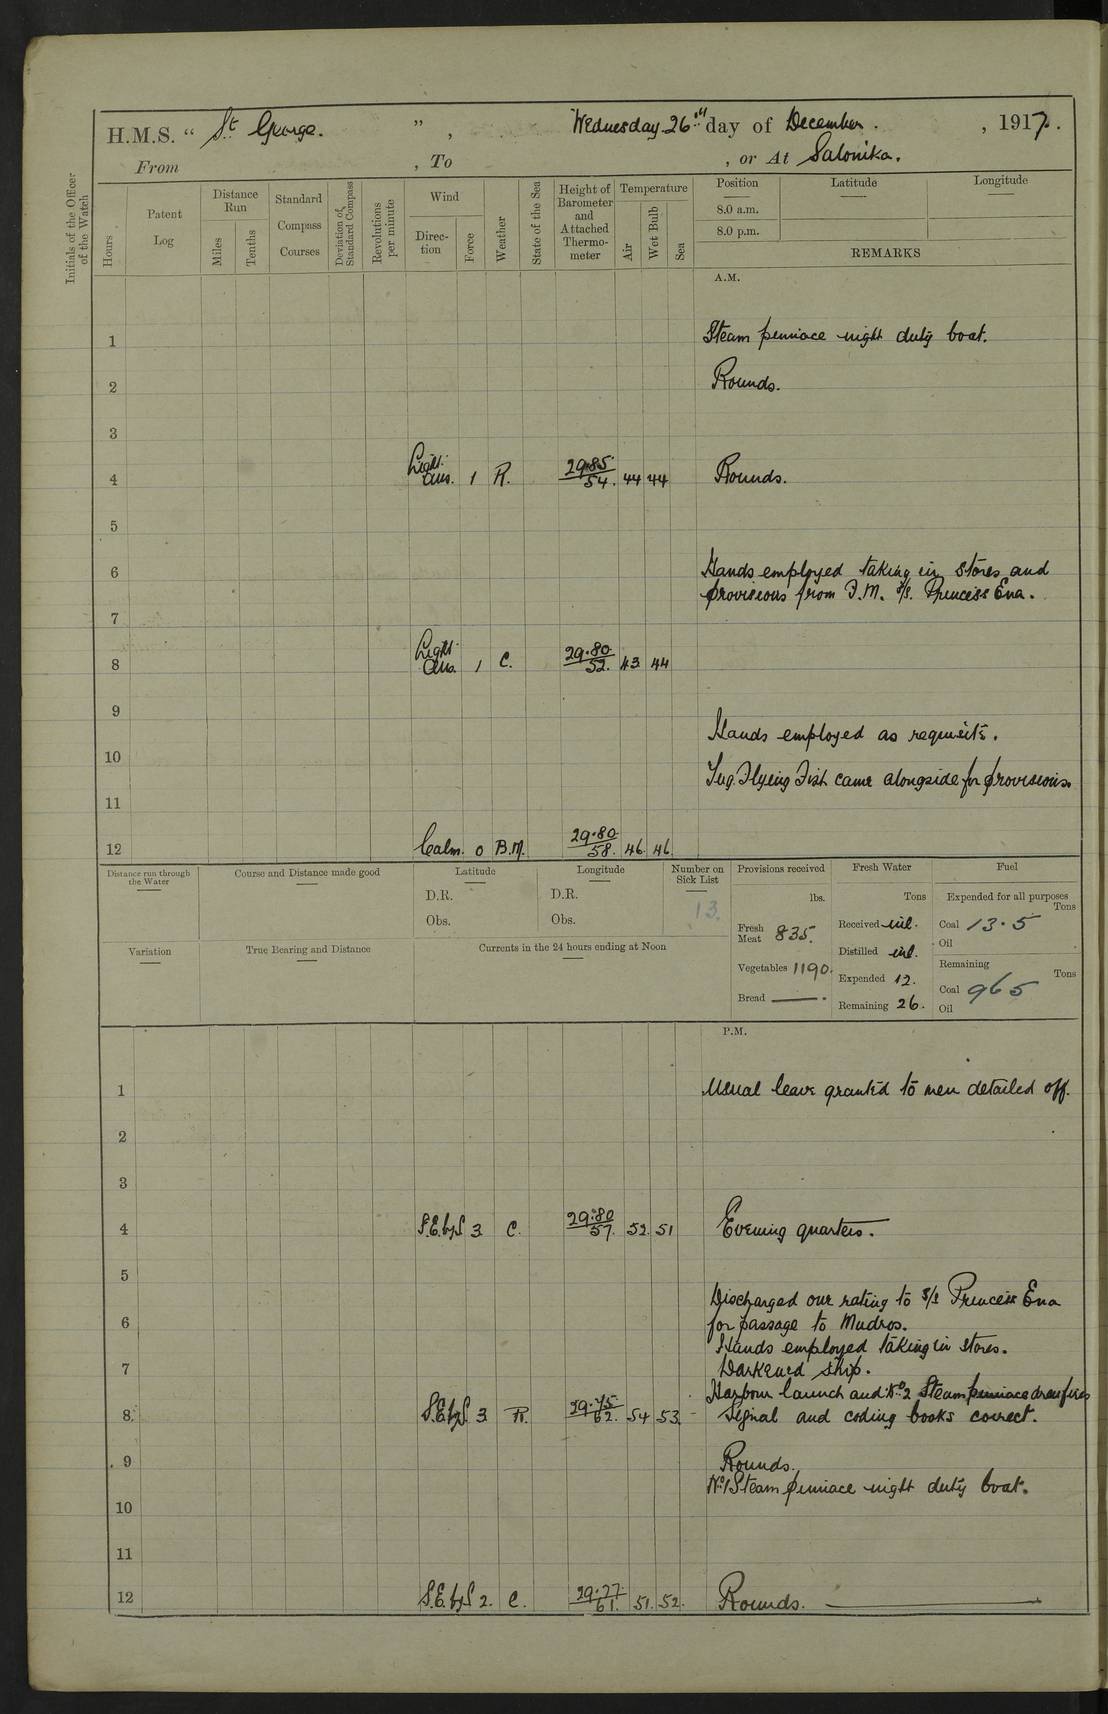 H.M.S. “ St George. ” , Wednesday 26th day of December. , 1917.
From , To , or At Salonika.
Initials of the Officer of the Watch
Hours
Patent Log
Distance Run
Miles
Tenths
Standard Compass Courses
Deviation of Standard Compass
Revolutions per minute
Wind
Direction
Force
Weather
State of the Sea
Height of Barometer and Attached Thermometer
Temperature
Air
Wet Bulb
Sea
Position Latitude Longitude
8.0 a.m.
8.0 p.m.
REMARKS
A.M.
1 Steam pinnace night duty boat.
2 Rounds.
3
4 Light airs. 1 R. 29.85 54. 44 44 Rounds.
5
6 Hands employed taking in stores and
provisions from F.M. s/s. Princess Ena.
7
8 Light Airs. 1 C. 29.80 52. 43 44
9
Hands employed as requisite.
10
Tug Flying Fish came alongside for provisions.
11
12 Calm. 0 B.M. 29.80 58. 46. 46.
Distance run through the Water
Course and Distance made good
Latitude
D.R.
Obs.
Longitude
D.R.
Obs.
Number on Sick List
13.
Provisions received
lbs.
Fresh Meat 835.
Vegetables 1190.
Bread ——.
Fresh Water
Tons
Received nil.
Distilled nil.
Expended 12.
Remaining 26.
Fuel
Expended for all purposes
Tons
Coal 13.5
Oil
Remaining
Tons
Coal 965
Oil
Variation
True Bearing and Distance
Currents in the 24 hours ending at Noon
P.M.
1 Usual leave granted to men detailed off.
2
3
4 S.E.byS 3 C. 29.80 57. 52. 51 Evening quarters.
5
Discharged one rating to s/s Princess Ena
6 for passage to Mudros.
Hands employed taking in stores.
7 Darkened ship.
Harbour launch and No. 2 Steam pinnace drew fires
8. S.E.byS. 3 R. 29.75 62. 54 53. Signal and coding books correct.
9 Rounds.
No. 1 Steam pinnace night duty boat.
10
11
12 S.E.byS 2. C. 29.77 61. 51. 52. Rounds.